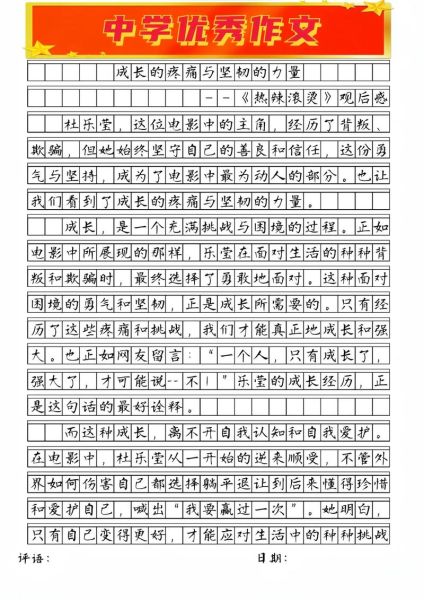 中学优秀作文
成长的疼痛与坚韧的力量
--《热辣滚烫》观后感
杜乐莹，这位电影中的主角，经历了背叛、
欺骗，但她始终坚守自己的善良和信任，这份勇
气与坚持，成为了电影中最为动人的部分。也让
我们看到了成长的疼痛与坚韧的力量。
成长，是一个充满挑战与困境的过程。正如
电影中所展现的那样，乐莹在面对生活的种种背
叛和欺骗时，最终选择了勇敢地面对。这种面对
困境的勇气和坚韧，正是成长所需要的。只有经
历了这些疼痛和挑战，我们才能真正地成长和强
大。也正如网友留言：“一个人，只有成长了，
强大了，才可能说--不！”乐莹的成长经历，正
是这句话的最好诠释。
而这种成长，离不开自我认知和自我爱护。
在电影中，杜乐莹从一开始的逆来顺受，不管外
界如何伤害自己都选择躺平退让到后来懂得珍惜
和爱护自己，喊出“我要赢过一次”。她明白，
只有自己变得更好，才能应对生活中的种种挑战
评语：
日期：